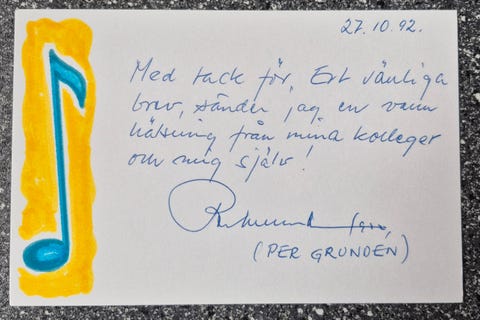 27.10.92.
Med tack för Ert vänliga
brev, sänder jag en varm
hälsning från mina kolleger
och mig själv!
(PER GRUNDÉN)